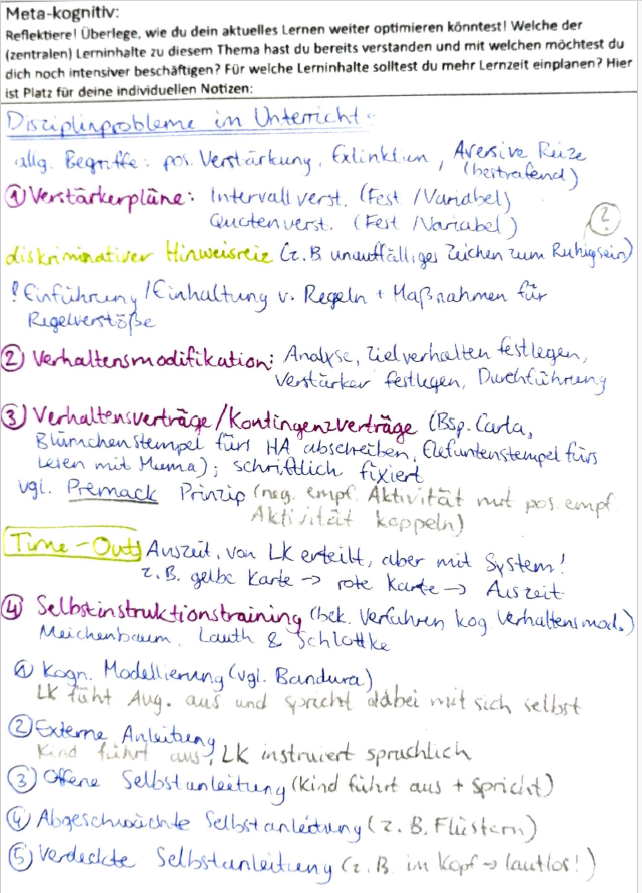 Meta-kognitiv:
Reflektiere! Überlege, wie du dein aktuelles Lernen weiter optimieren könntest! Welche der
(zentralen) Lerninhalte zu diesem Thema hast du bereits verstanden und mit welchen möchtest du
dich noch intensiver beschäftigen? Für welche Lerninhalte solltest du mehr Lernzeit einplanen? Hier
ist Platz für deine individuellen Notizen:
Disziplinprobleme im Unterricht:
allg. Begriffe: pos. Verstärkung, Extinktion, Aversive Reize
(bestrafend)
① Verstärkerpläne: Intervallverst. (Fest / Variabel)
Quotenverst. (Fest / Variabel)
?
diskriminativer Hinweisreiz (z.B unauffälliges Zeichen zum Ruhigsein)
! Einführung / Einhaltung v. Regeln + Maßnahmen für
Regelverstöße
② Verhaltensmodifikation: Analyse, Zielverhalten festlegen,
Verstärker festlegen, Durchführung
③ Verhaltensverträge / Kontingenzverträge (Bsp. Carla,
Blümchenstempel fürs HA abschreiben, Elefantenstempel fürs
Lesen mit Mama); schriftlich fixiert
vgl. Premack Prinzip (neg. empf. Aktivität mit pos. empf.
Aktivität koppeln)
Time-Out Auszeit, von LK erteilt, aber mit System!
z.B. gelbe Karte → rote Karte → Auszeit
④ Selbstinstruktionstraining (bek. Verfahren kog. Verhaltensmod.)
Meichenbaum, Lauth & Schlottke
① Kogn. Modellierung (vgl. Bandura)
LK führt Aug. aus und spricht dabei mit sich selbst
② Externe Anleitung
Kind führt aus, LK instruiert sprachlich
③ Offene Selbstanleitung (Kind führt aus + spricht)
④ Abgeschwächte Selbstanleitung (z.B. Flüstern)
⑤ Verdeckte Selbstanleitung (z.B. im Kopf → lautlos!)